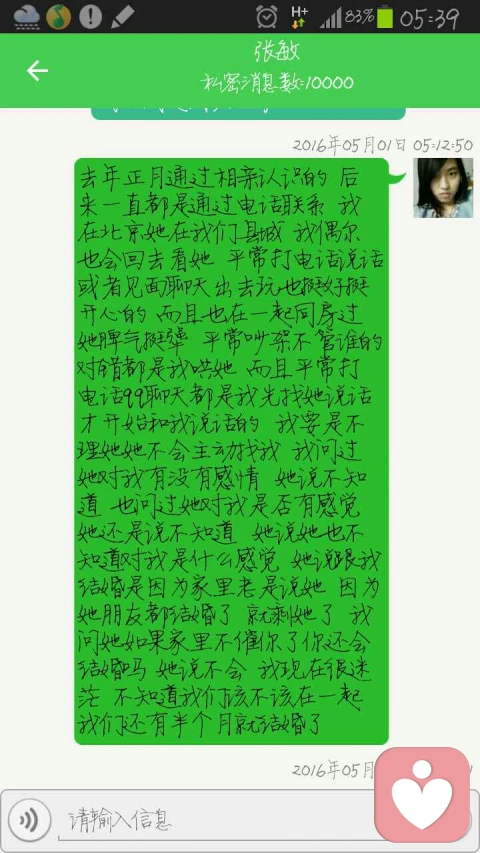 H+
83%
05:39
张敏
私密消息数:10000
2016年05月01日 05:12:50
去年正月通过相亲认识的 后
来一直都是通过电话联系 我
在北京她在我们县城 我偶尔
也会回去看她 平常打电话说话
或者见面聊天出去玩也挺好挺
开心的 而且也在一起同房过
她脾气挺犟 平常吵架不管谁的
对错都是我哄她 而且平常打
电话qq聊天都是我先找她说话
才开始和我说话的 我要是不
理她她不会主动找我 我问过
她对我有没有感情 她说不知
道 也问过她对我是否有感觉
她还是说不知道 她说她也不
知道对我是什么感觉 她说跟我
结婚是因为家里老是说她 因为
她朋友都结婚了 就剩她了 我
问她如果家里不催你了你还会
结婚吗 她说不会 我现在很迷
茫 不知道我们该不该在一起
我们还有半个月就结婚了
2016年05月
请输入信息